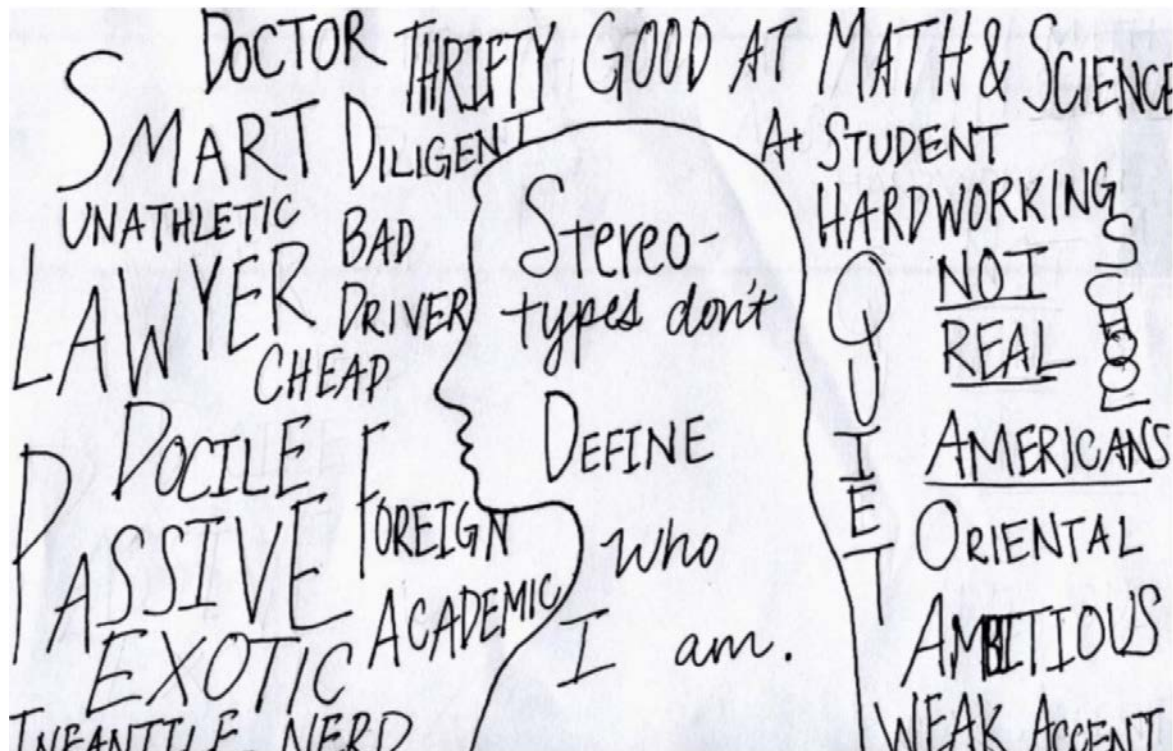 DOCTOR THRIFTY GOOD AT MATH & SCIENCE
SMART DILIGENT
A+ STUDENT
HARDWORKING
UNATHLETIC
BAD
DRIVER
LAWYER
CHEAP
DOCILE
PASSIVE
FOREIGN
ACADEMIC
EXOTIC
INFANTILE NERD
Stereo-
types don't
DEFINE
who
I am.
QUIET
NOT
REAL
AMERICANS
ORIENTAL
AMBITIOUS
WEAK ACCENT